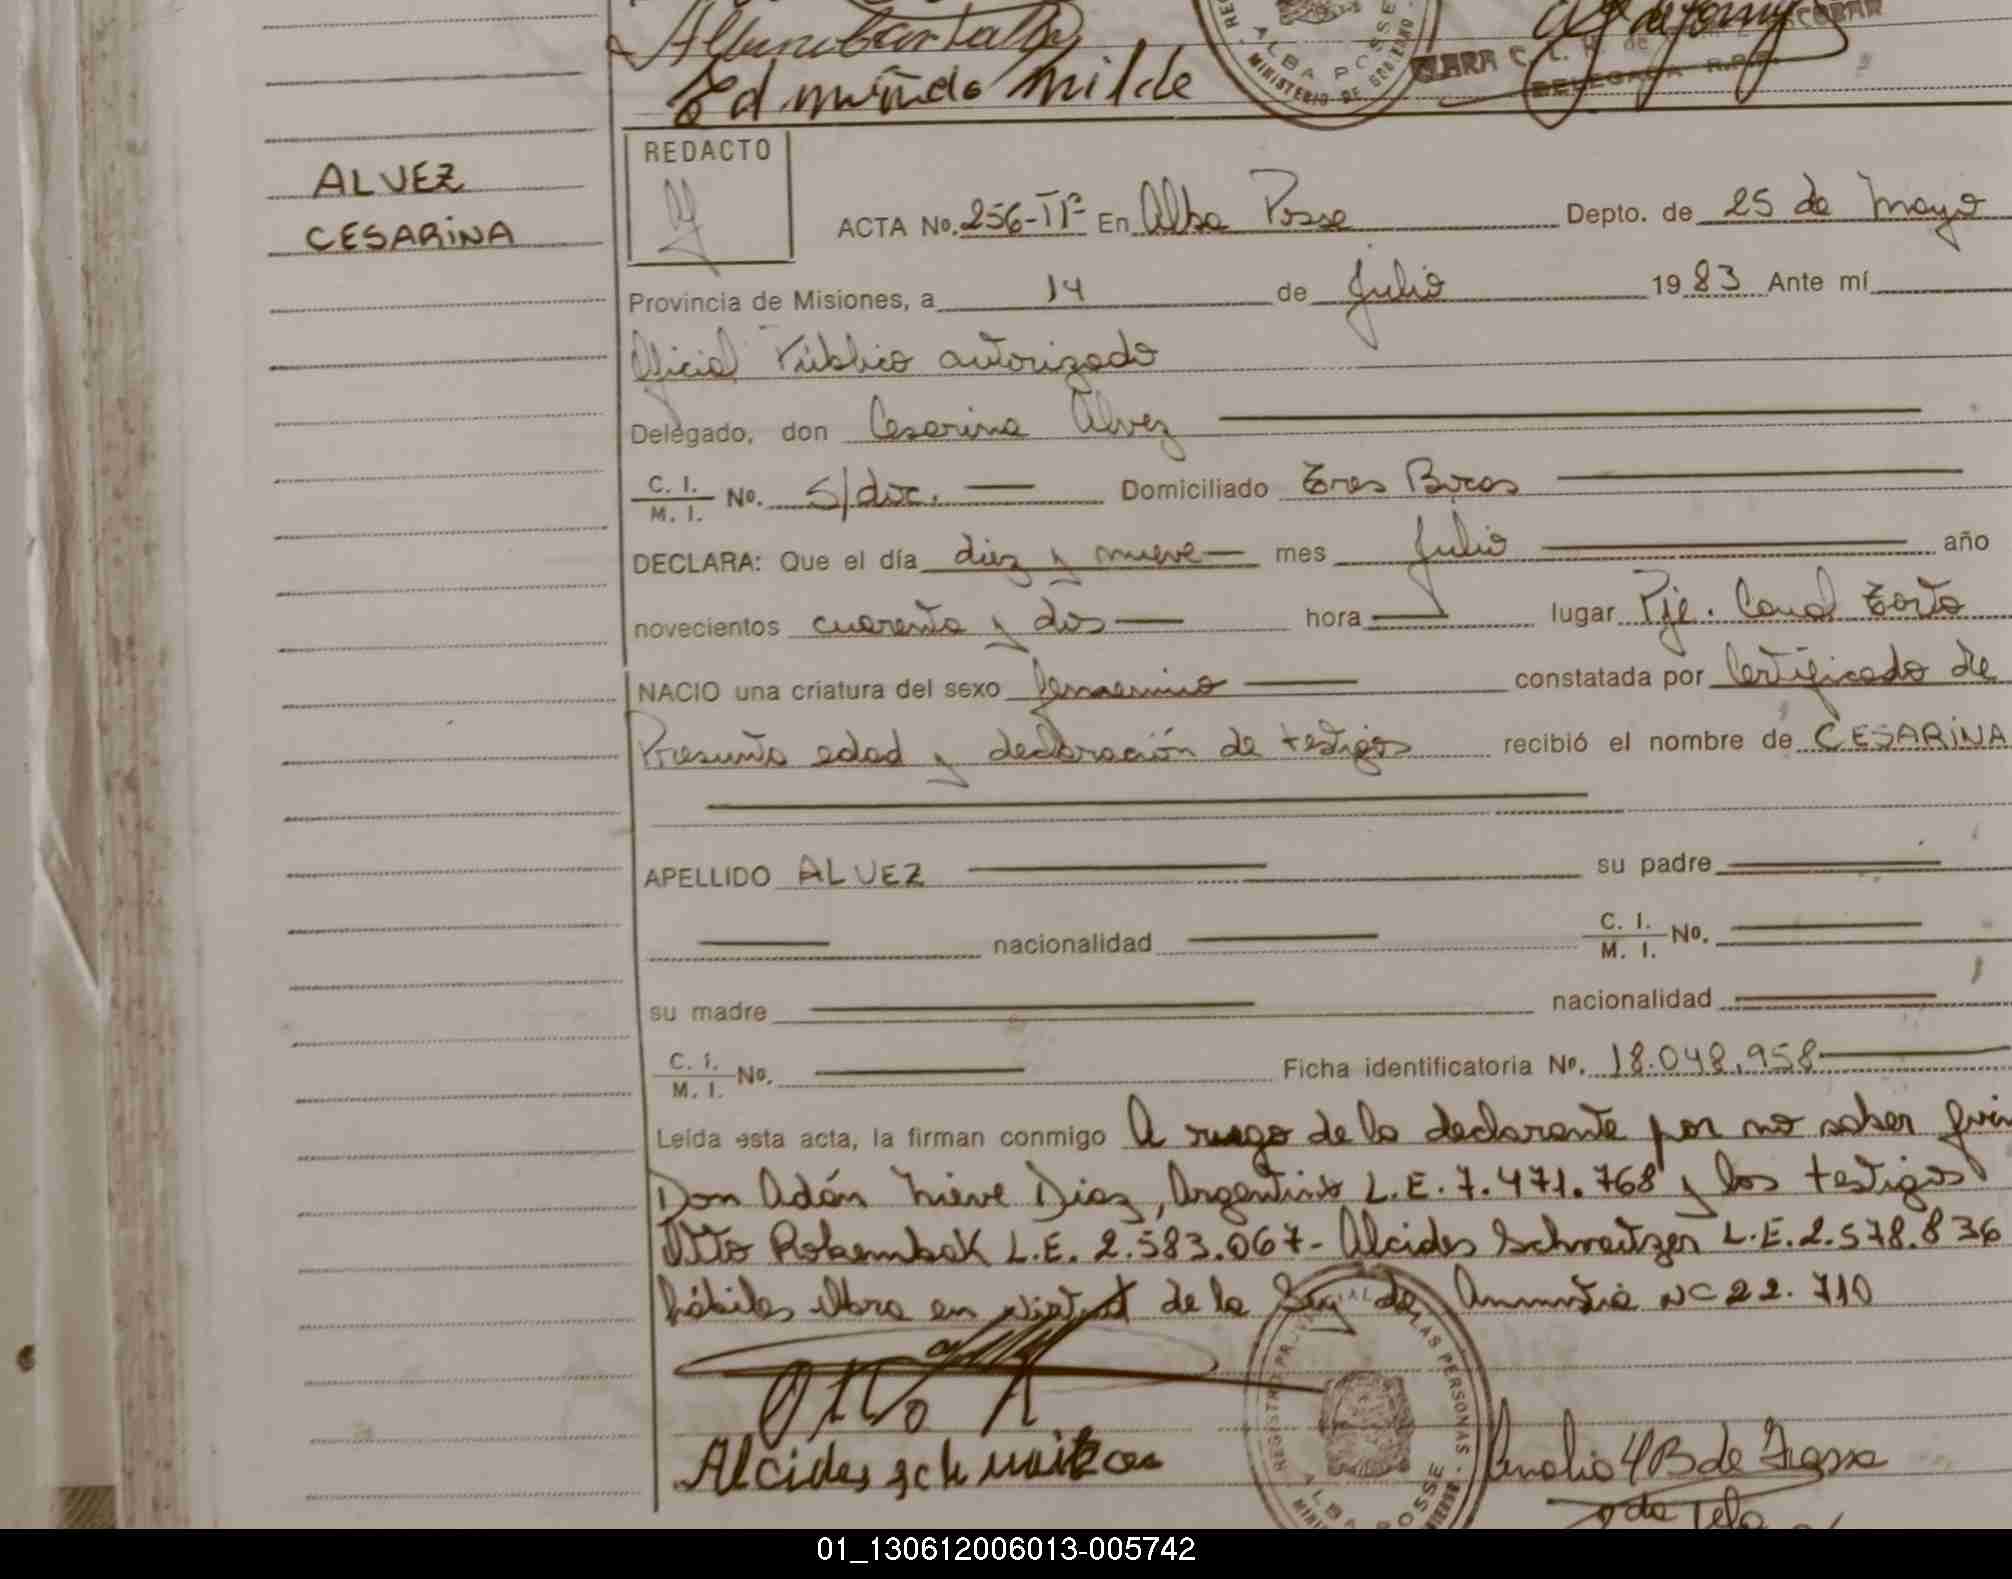 Edmundo Milde
ALBA POSSE
MINISTERIO DE GOBIERNO
DELEGADA R.P.P.
ALVEZ
CESARINA
REDACTO
ACTA No. 256-Tº En Alba Posse Depto. de 25 de Mayo
Provincia de Misiones, a 14 de Julio 1983 Ante mí
Oficial Público autorizado
Delegado, don Cesarina Alvez
C. I. / M. I. No. S/doc. Domiciliado Tres Bocas
DECLARA: Que el día diez y nueve mes Julio año
novecientos cuarenta y dos hora lugar Pje. Canal Torto
NACIO una criatura del sexo femenino constatada por Certificado de
Presunta edad y declaración de testigos recibió el nombre de CESARINA
APELLIDO ALVEZ su padre
nacionalidad C. I. / M. I. No.
su madre nacionalidad
C. I. / M. I. No. Ficha identificatoria No. 18.048.958
Leída esta acta, la firman conmigo A ruego de la declarante por no saber
Don Adán Nieve Diaz, Argentino L.E. 7.471.768 y los testigos
Otto Rokembak L.E. 2.583.067- Alcides Schweitzer L.E. 2.578.836
hábiles Obra en virtud de la Ley de Amnistia Nº 22.710
Otto R
Alcides schweitzer
ALBA POSSE
01_130612006013-005742